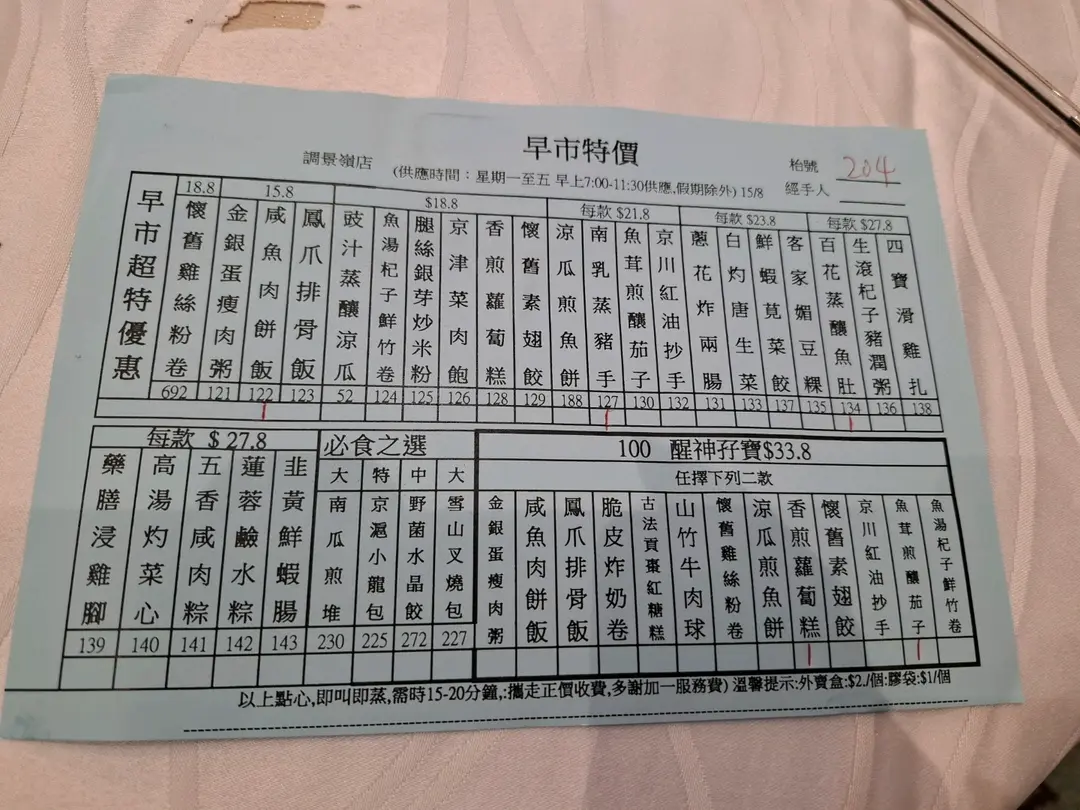 早市特價
調景嶺店
(供應時間：星期一至五 早上7:00-11:30供應,假期除外) 15/8
枱號 204
經手人
早市超特優惠
18.8
懷舊雞絲粉卷 692
15.8
金銀蛋瘦肉粥 121
咸魚肉餅飯 122
鳳爪排骨飯 123
$18.8
豉汁蒸釀涼瓜 52
魚湯杞子鮮竹卷 124
腿絲銀芽炒米粉 125
京津菜肉飽 126
香煎蘿蔔糕 128
懷舊素翅餃 129
每款 $21.8
涼瓜煎魚餅 188
南乳蒸豬手 127
魚茸煎釀茄子 130
京川紅油抄手 132
每款 $23.8
蔥花炸兩腸 131
白灼唐生菜 133
鮮蝦莧菜餃 137
客家媚豆粿 135
每款 $27.8
百花蒸釀魚肚 134
生滾杞子豬潤粥 136
四寶滑雞扎 138
每款 $27.8
藥膳浸雞腳 139
高湯灼菜心 140
五香咸肉粽 141
蓮蓉鹼水粽 142
韭黃鮮蝦腸 143
必食之選
大 南瓜煎堆 230
特 京滬小龍包 225
中 野菌水晶餃 272
大 雪山叉燒包 227
100 醒神孖寶$33.8
任擇下列二款
金銀蛋瘦肉粥
咸魚肉餅飯
鳳爪排骨飯
脆皮炸奶卷
古法貢棗紅糖糕
山竹牛肉球
懷舊雞絲粉卷
涼瓜煎魚餅
香煎蘿蔔糕
懷舊素翅餃
京川紅油抄手
魚茸煎釀茄子
魚湯杞子鮮竹卷
以上點心,即叫即蒸,需時15-20分鐘,:攜走正價收費,多謝加一服務費) 溫馨提示:外賣盒:$2./個:膠袋:$1/個